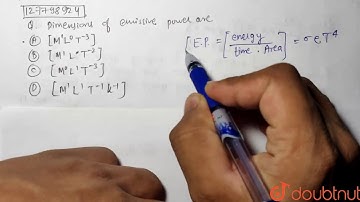 127798924
Q. Dimensions of emissive power are
(A) [M¹L⁰T⁻³]
(B) [M¹L⁰T⁻²]
(C) [M⁰L¹T⁻³]
(D) [M¹L¹T⁻¹K⁻¹]
[E.P. = [energy / time . Area] = σeT⁴
doubtnut